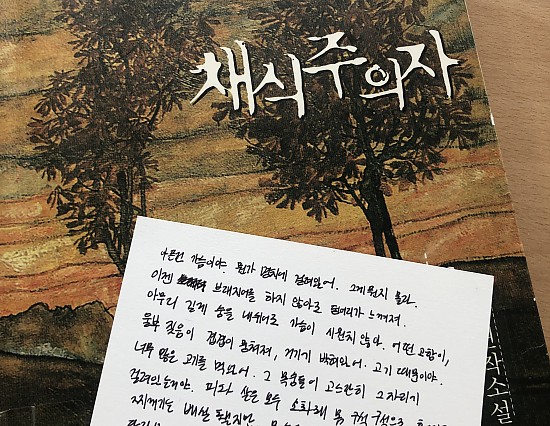 채식주의자
아픈건 가슴이야. 뭔가 명치에 걸려있어. 그게 뭔지 몰라.
이젠 브래지어를 하지 않아도 덩어리가 느껴져.
아무리 길게 숨을 내쉬어도 가슴이 시원치 않아. 어떤 고함이,
울부짖음이 겹겹이 뭉쳐져, 거기 박혀있어. 고기 때문이야.
너무 많은 고기를 먹었어. 그 목숨들이 고스란히 그 자리에
걸려있는거야. 피와 살은 모두 소화돼 몸 구석 구석으로
찌꺼기는 배설 됐지만,
작소설